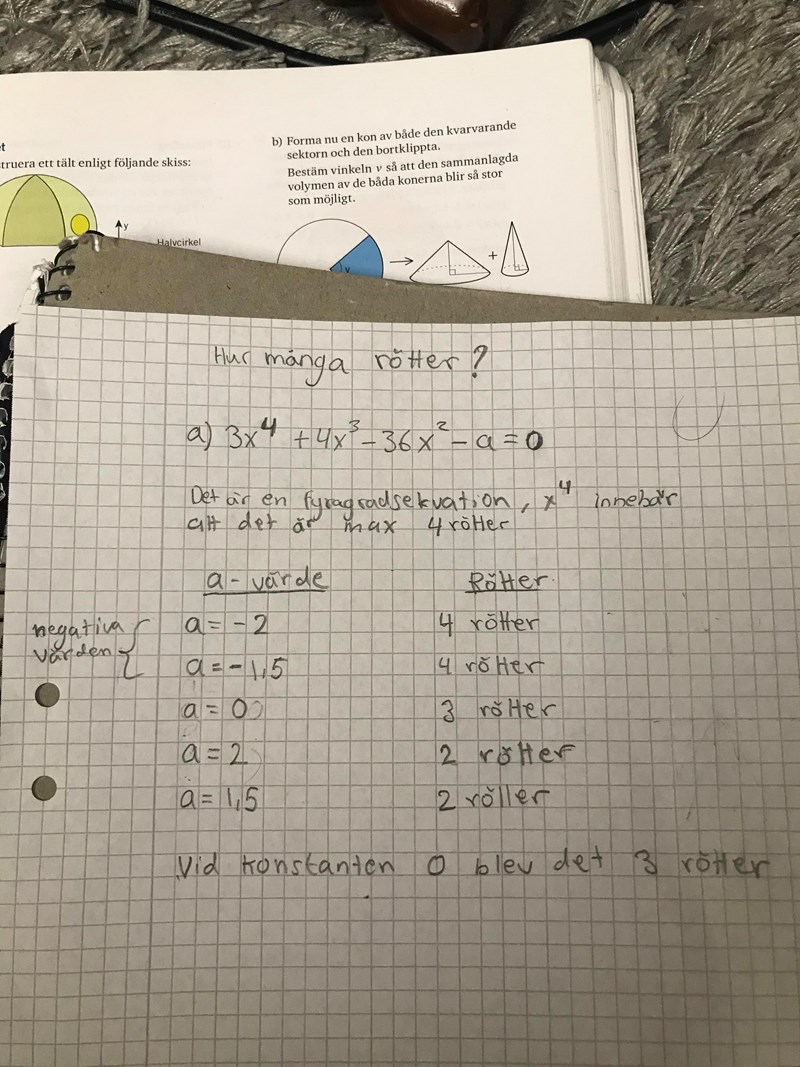 et
truera ett tält enligt följande skiss:
y
Halvcirkel
b) Forma nu en kon av både den kvarvarande
sektorn och den bortklippta.
Bestäm vinkeln v så att den sammanlagda
volymen av de båda konerna blir så stor
som möjligt.
v
+
Hur många rötter?
a) 3x⁴ + 4x³ - 36x² - a = 0
Det är en fyragradsekvation, x⁴ innebär
att det är max 4 rötter
a - värde Rötter
negativa värden { a = -2 4 rötter
a = -1,5 4 rötter
a = 0 3 rötter
a = 2 2 rötter
a = 1,5 2 rötter
Vid konstanten 0 blev det 3 rötter